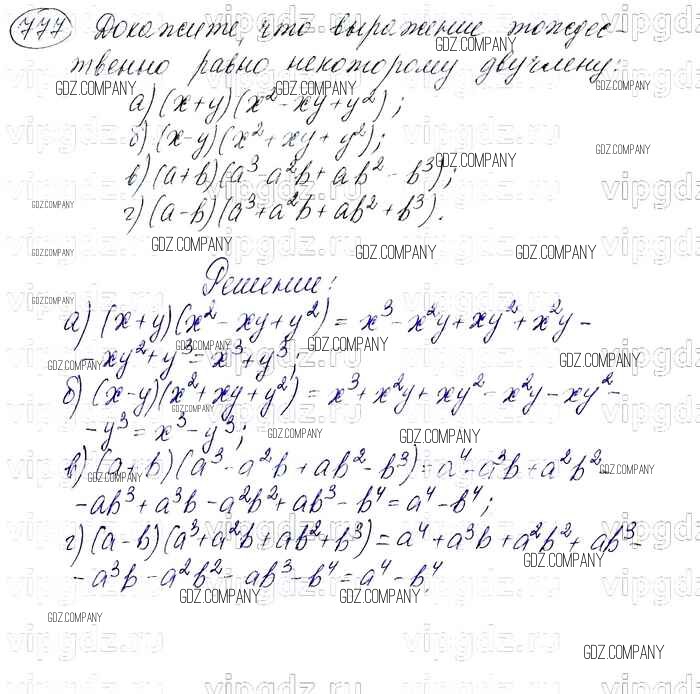 777 Докажите, что выражение тождес-
твенно равно некоторому двучлену:
а) (x+y)(x²-xy+y²);
б) (x-y)(x²+xy+y²);
в) (a+b)(a³-a²b+ab²-b³);
г) (a-b)(a³+a²b+ab²+b³).
Решение:
а) (x+y)(x²-xy+y²) = x³-x²y+xy²+x²y-
-xy²+y³=x³+y³;
б) (x-y)(x²+xy+y²) = x³+x²y+xy²-x²y-xy²-
-y³=x³-y³;
в) (a+b)(a³-a²b+ab²-b³)=a⁴-a³b+a²b²-
-ab³+a³b-a²b²+ab³-b⁴=a⁴-b⁴;
г) (a-b)(a³+a²b+ab²+b³)=a⁴+a³b+a²b²+ab³-
-a³b-a²b²-ab³-b⁴=a⁴-b⁴
GDZ.COMPANY
vipgdz.ru